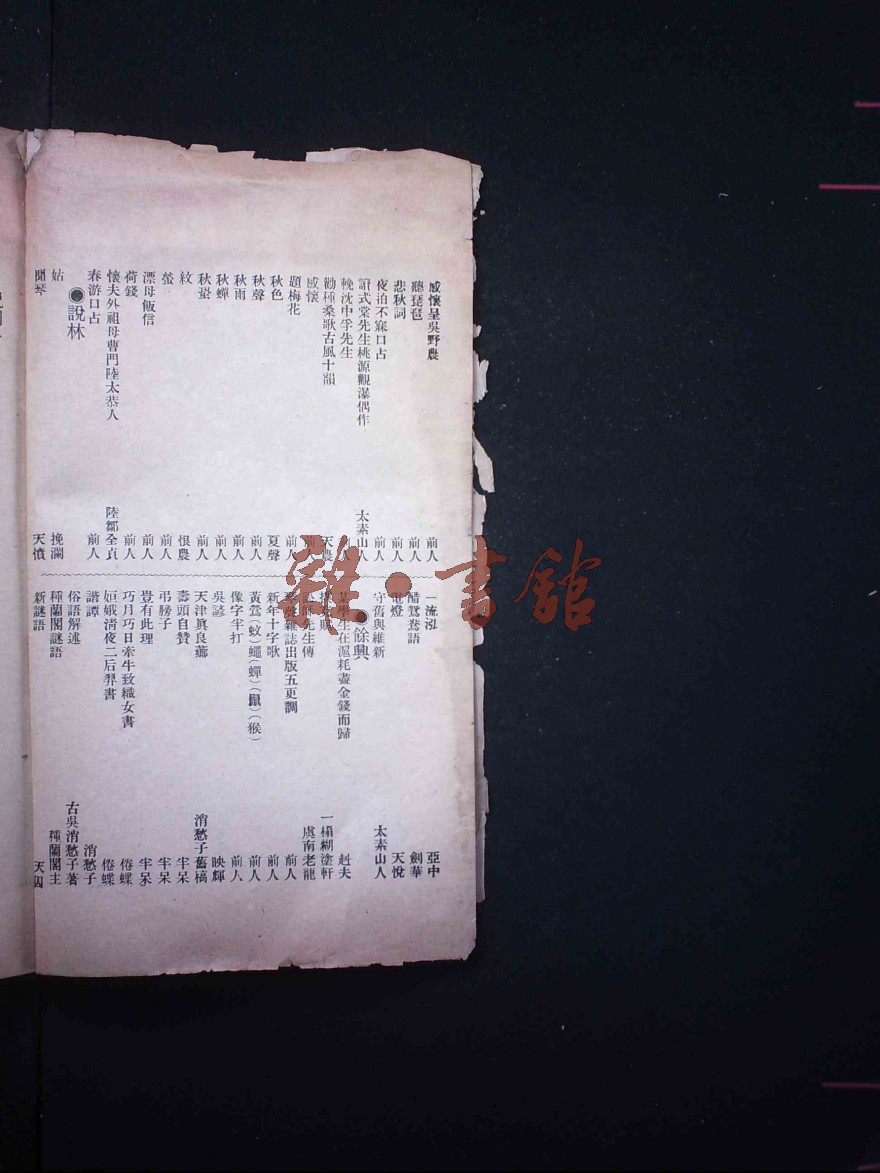 感懷呈吳野農 前人
聽琵琶 前人
悲秋詞 前人
夜泊不寐口占 前人
讀式堂先生桃源觀瀑偶作 太素山人
輓沈中孚先生 前人
勸種桑歌古風十韻 天農
感懷 前人
題梅花 前人
秋色 夏聲
秋聲 前人
秋雨 前人
秋蟬 前人
秋蛩 前人
紋 恨農
螢 前人
漂母飯信 前人
荷錢 前人
懷夫外祖母曹門陸太恭人 陸鄒全貞
春游口占 前人
◉說林
姑 挽瀾
聞琴 天憤
一流泓 亞中
醋鴛鴦語 劍華
電燈 天悅
守舊與維新 太素山人
◉餘興
某學生在滬耗盡金錢而歸 赳夫
一榻糊塗軒
先生傳 虞南老龍
雜誌出版五更調 前人
新年十字歌 前人
黃鶯(蚊)蠅(蟬)(鼠)(猴) 前人
像字半打 前人
吳諺 映輝
天津眞良薌 消愁子舊槁
壽頭自贊 半呆
弔勝子 半呆
豈有此理 半呆
巧月巧日牽牛致織女書 倦蝶
姮娥清夜二后羿書 倦蝶
諧譚 消愁子
俗語解述 古吳消愁子著
種蘭閣謎語 種蘭閣主
新謎語 天囚
雜·書館